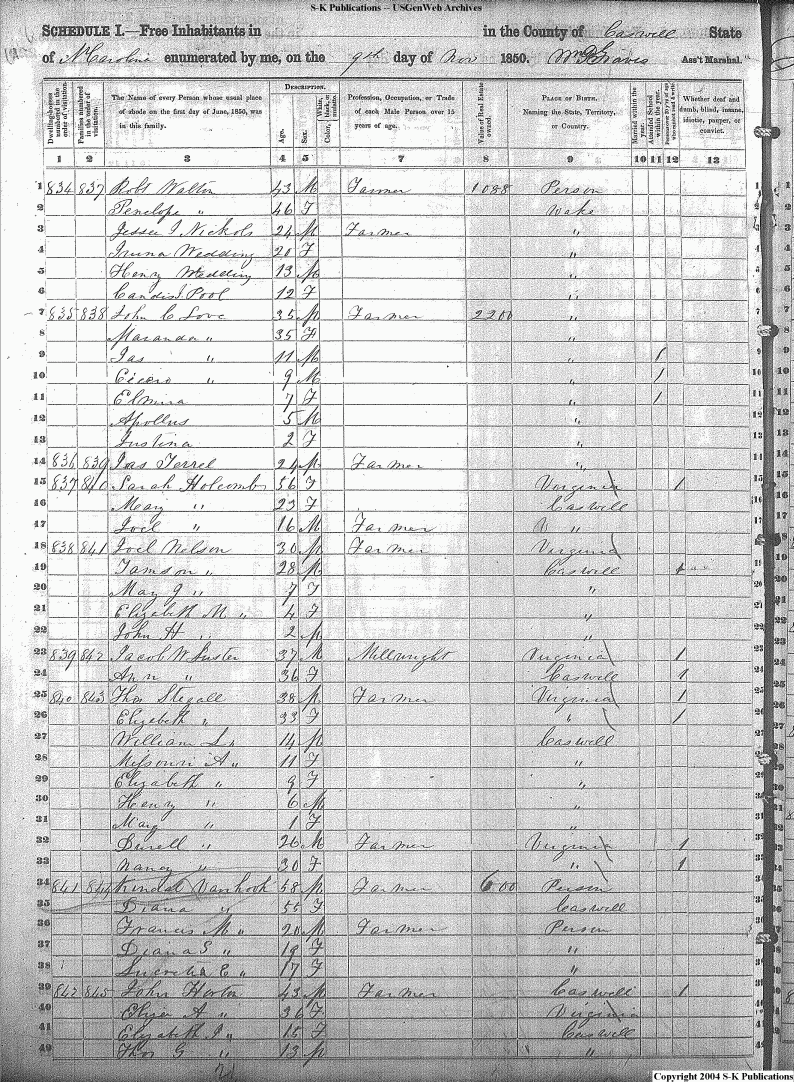 S-K Publications -- USGenWeb Archives
SCHEDULE I.—Free Inhabitants in in the County of Caswell State
of N Carolina enumerated by me, on the 9th day of Nov 1850. Wm Graves Ass't Marshal.
Dwelling-houses numbered in the order of visitation.
Families numbered in the order of visitation.
The Name of every Person whose usual place of abode on the first day of June, 1850, was in this family.
DESCRIPTION.
Age.
Sex.
White, black, or mulatto.
Color
Profession, Occupation, or Trade of each Male Person over 15 years of age.
Value of Real Estate owned.
PLACE OF BIRTH.
Naming the State, Territory, or Country.
Married within the year.
Attended School within the year.
Persons over 20 y'rs of age who cannot read & write
Whether deaf and dumb, blind, insane, idiotic, pauper, or convict.
1 2 3 4 5 7 8 9 10 11 12 13
1 834 837 Robt Walton 43 M Farmer 1088 Person
2 Penelope " 46 F Wake
3 Jessee J Nickols 24 M Farmer "
4 Wedding 20 F "
5 Henry Wedding 13 M "
6 Candis J. Pool 12 F "
7 835 838 John C Love 35 M Farmer 2200 "
8 Maranda " 35 F "
9 Jas " 11 M " 1
10 Cicero " 9 M " 1
11 Elmira 7 F " 1
12 Apollus 5 M "
13 Justina 2 F "
14 836 839 Jas Terrel 24 M Farmer "
15 837 840 Sarah Holcomb 56 F Virginia 1
16 May " 23 F Caswell
17 Joel " 16 M Farmer V "
18 838 841 Joel Nelson 30 M Farmer Virginia
19 Tamson " 28 M Caswell 1
20 May J " 7 F "
21 Elizabeth M " 4 F "
22 John H " 2 M "
23 839 842 Jacob W Luster 37 M Millwright Virginia 1
24 Ann " 36 F Caswell 1
25 840 843 Thos Stegall 38 M Farmer Virginia 1
26 Elizabeth " 33 F " 1
27 William L " 14 M Caswell
28 Missouri A " 11 F "
29 Elizabeth " 9 F "
30 Henry " 6 M "
31 May " 1 F "
32 Durell " 26 M Farmer Virginia 1
33 Nancy " 30 F " 1
34 841 844 Kindal Vanhook 58 M Farmer 600 Person
35 Diana " 55 F Caswell
36 Francis M " 20 M Farmer Person
37 Diana S " 19 F "
38 Lucretia C " 17 F "
39 842 845 John Horton 43 M Farmer Caswell 1
40 Eliza A " 36 F Virginia
41 Elizabeth J " 15 F Caswell
42 Thos G " 13 M "
Copyright 2004 S-K Publications